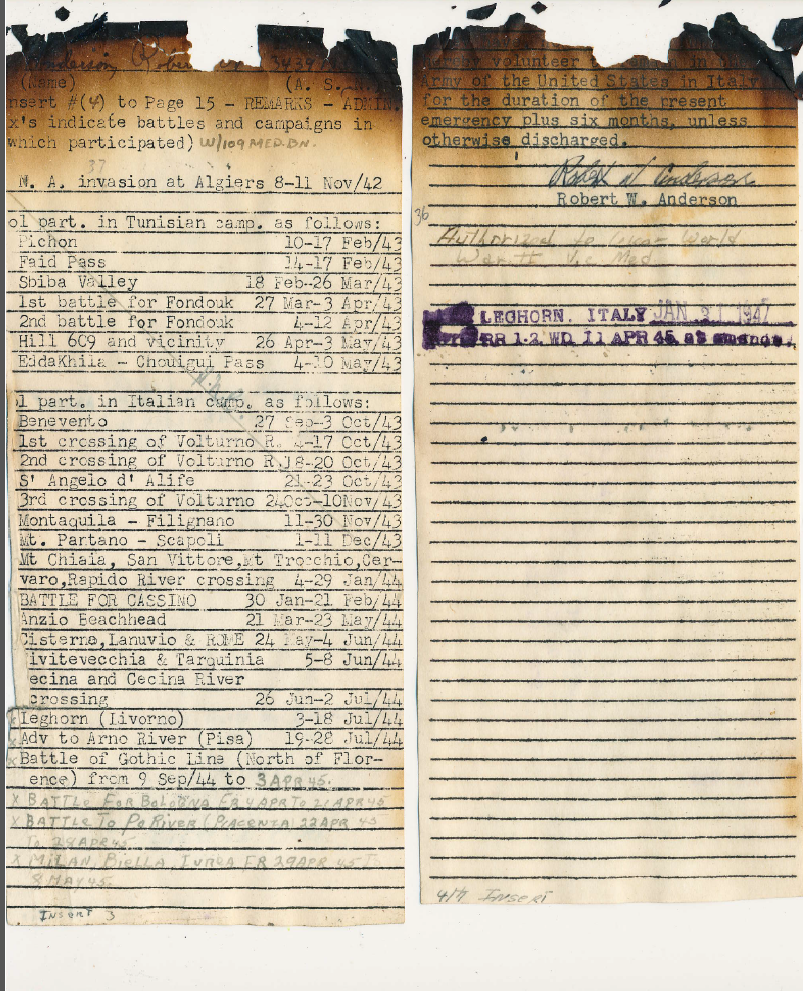 (Name) (A. S.
nsert #(4) to Page 15 - REMARKS - ADMIN.
x's indicate battles and campaigns in
which participated) W/109 MED. BN.
37
N. A. invasion at Algiers 8-11 Nov/42
ol part. in Tunisian camp. as follows:
Pichon 10-17 Feb/43
Faid Pass 14-17 Feb/43
Sbiba Valley 18 Feb-26 Mar/43
1st battle for Fondouk 27 Mar-3 Apr/43
2nd battle for Fondouk 4-12 Apr/43
Hill 609 and vicinity 26 Apr-3 May/43
EddaKhila - Chouigui Pass 4-10 May/43
ol part. in Italian camp. as follows:
Benevento 27 Sep-3 Oct/43
1st crossing of Volturno R. -17 Oct/43
2nd crossing of Volturno R.18-20 Oct/43
S' Angelo d' Alife 21-23 Oct/43
3rd crossing of Volturno 24Oct-10Nov/43
Montaquila - Filignano 11-30 Nov/43
Mt. Pantano - Scapoli 1-11 Dec/43
Mt Chiaia, San Vittore,Mt Trocchio,Cer-
varo,Rapido River crossing 4-29 Jan/44
BATTLE FOR CASSINO 30 Jan-21 Feb/44
Anzio Beachhead 21 Mar-23 May/44
Cisterna,Lanuvio & ROME 24 May-4 Jun/44
ivitevecchia & Tarquinia 5-8 Jun/44
ecina and Cecina River
crossing 26 Jun-2 Jul/44
x Leghorn (Livorno) 3-18 Jul/44
x Adv to Arno River (Pisa) 19-28 Jul/44
x Battle of Gothic Line (North of Flor-
ence) from 9 Sep/44 to 3 APR 45.
X BATTLE FOR BOLOGNA FR 4 APR TO 21 APR 45
X BATTLE TO PO RIVER (PIACENZA) 22 APR 45
TO 28 APR 45
X MILAN, BIELLA, IVREA FR 29 APR 45 TO
8 MAY 45.
INSERT 3
volunteer in the
Army of the United States in Italy
for the duration of the present
emergency plus six months, unless
otherwise discharged.
Robert W. Anderson
Robert W. Anderson
36
Authorized to wear World
War II Vic Med
LEGHORN, ITALY JAN 31 1947
RR 1-2 WD 11 APR 45 as amended.
4/7 INSERT